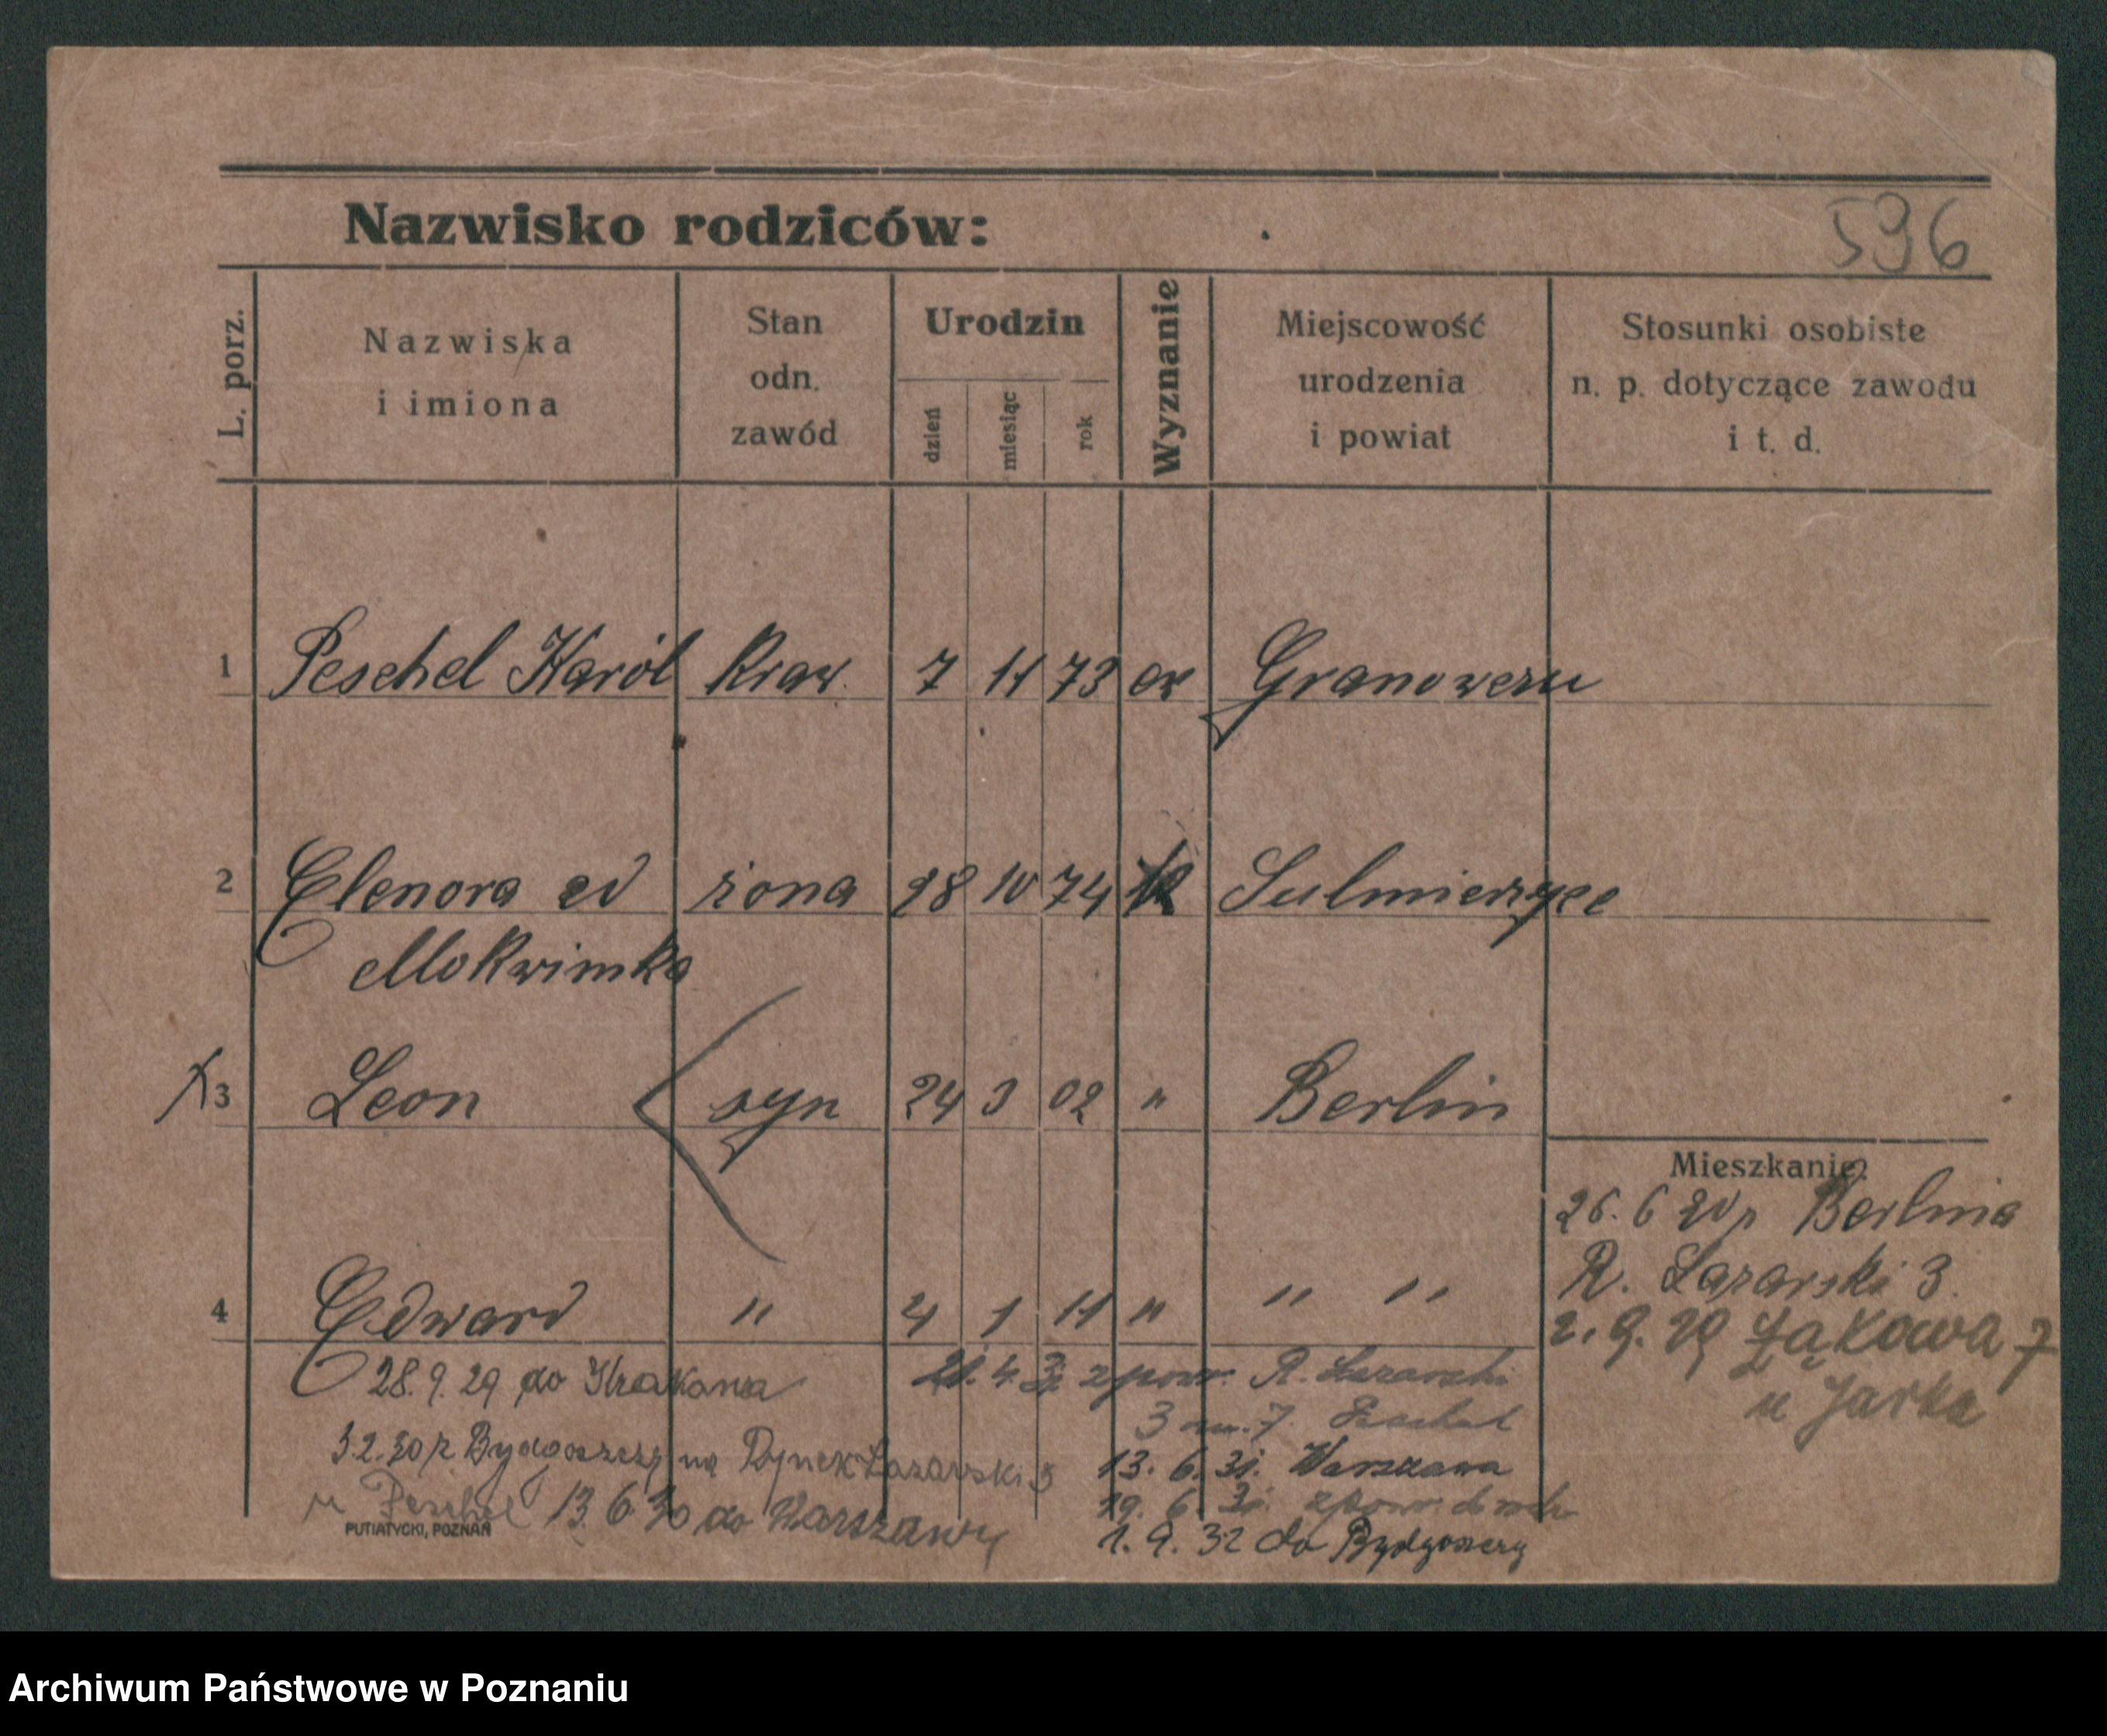 Nazwisko rodziców:
596
L. porz.
Nazwiska
i imiona
Stan
odn.
zawód
Urodzin
dzień
miesiąc
rok
Wyznanie
Miejscowość
urodzenia
i powiat
Stosunki osobiste
n. p. dotyczące zawodu
i t. d.
1 Peschel Karól kraw. 7 11 73 ew
2 Elenora żona 28 10 74 Sulmierzyce
3 Leon syn 24 3 02 " Berlin
4 Edward " 4 1 11 " " "
Mieszkanie:
26. 6 20 z Berlina
R. Łazarski 3.
2. 9. 29 Łąkowa 7
u Jarka
28. 9. 29 do Krakowa
3.2.30 z Bydgoszczy na Rynek Łazarski 3
u Peschel 13. 6. 30 do Warszawy
4 z pow. R. Łazarski
3 m. 7. Peschel
13. 6. 31. Warszawa
19. 6. 31. z pow.
1. 9. 32 do Bydgoszczy
PUTIATYCKI, POZNAŃ
Archiwum Państwowe w Poznaniu